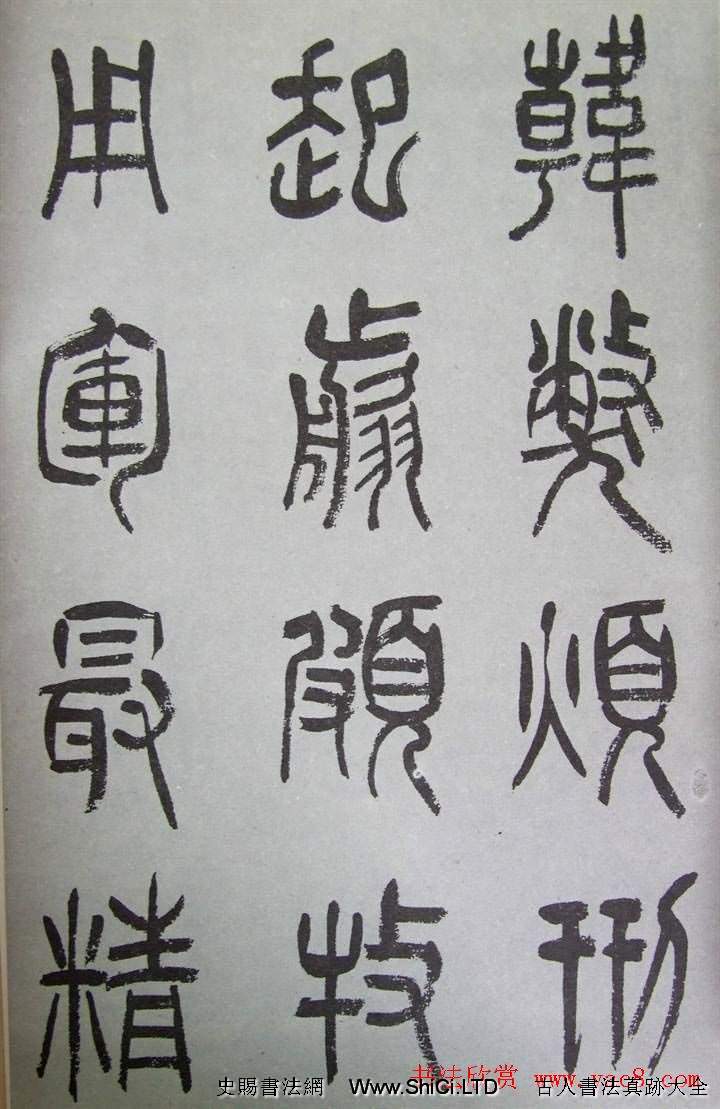 韓弊煩刑
起翦頗牧
用軍最精
书法欣赏 www.yac8.com
史賜書法網 Www.ShiCi.LTD 古人書法真跡大全